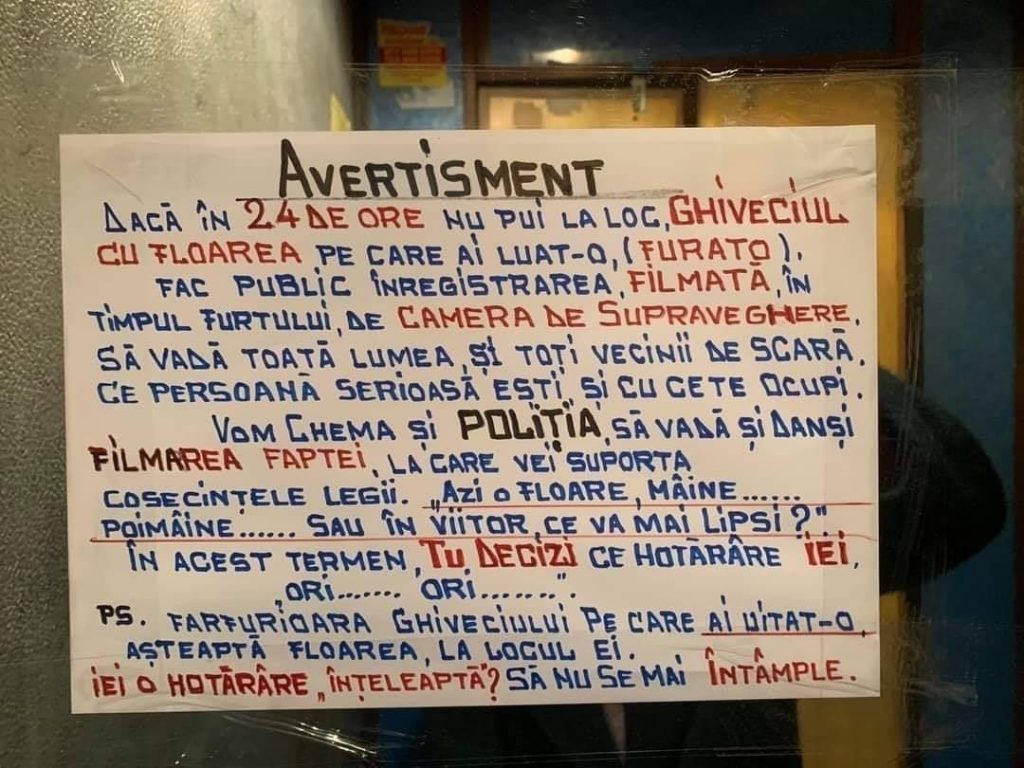 AVERTISMENT
DACĂ ÎN 24 DE ORE NU PUI LA LOC, GHIVECIUL
CU FLOAREA PE CARE AI LUAT-O, (FURATO),
FAC PUBLIC ÎNREGISTRAREA, FILMATĂ, ÎN
TIMPUL FURTULUI, DE CAMERA DE SUPRAVEGHERE.
SĂ VADĂ TOATĂ LUMEA, ȘI TOȚI VECINII DE SCARĂ,
CE PERSOANĂ SERIOASĂ EȘTI, ȘI CU CETE OCUPI.
VOM CHEMA ȘI POLIȚIA, SĂ VADĂ ȘI DANȘI
FILMAREA FAPTEI, LA CARE VEI SUPORTA
COSECINȚELE LEGII. „AZI O FLOARE, MÂINE......
POIMÂINE...... SAU ÎN VIITOR, CE VA MAI LIPSI?"
ÎN ACEST TERMEN, TU DECIZI CE HOTĂRÂRE IEI,
„ORI....... ORI.......".
PS. FARFURIOARA GHIVECIULUI PE CARE AI UITAT-O,
AȘTEAPTĂ FLOAREA, LA LOCUL EI.
IEI O HOTĂRÂRE „ÎNȚELEAPTĂ"? SĂ NU SE MAI ÎNTÂMPLE.